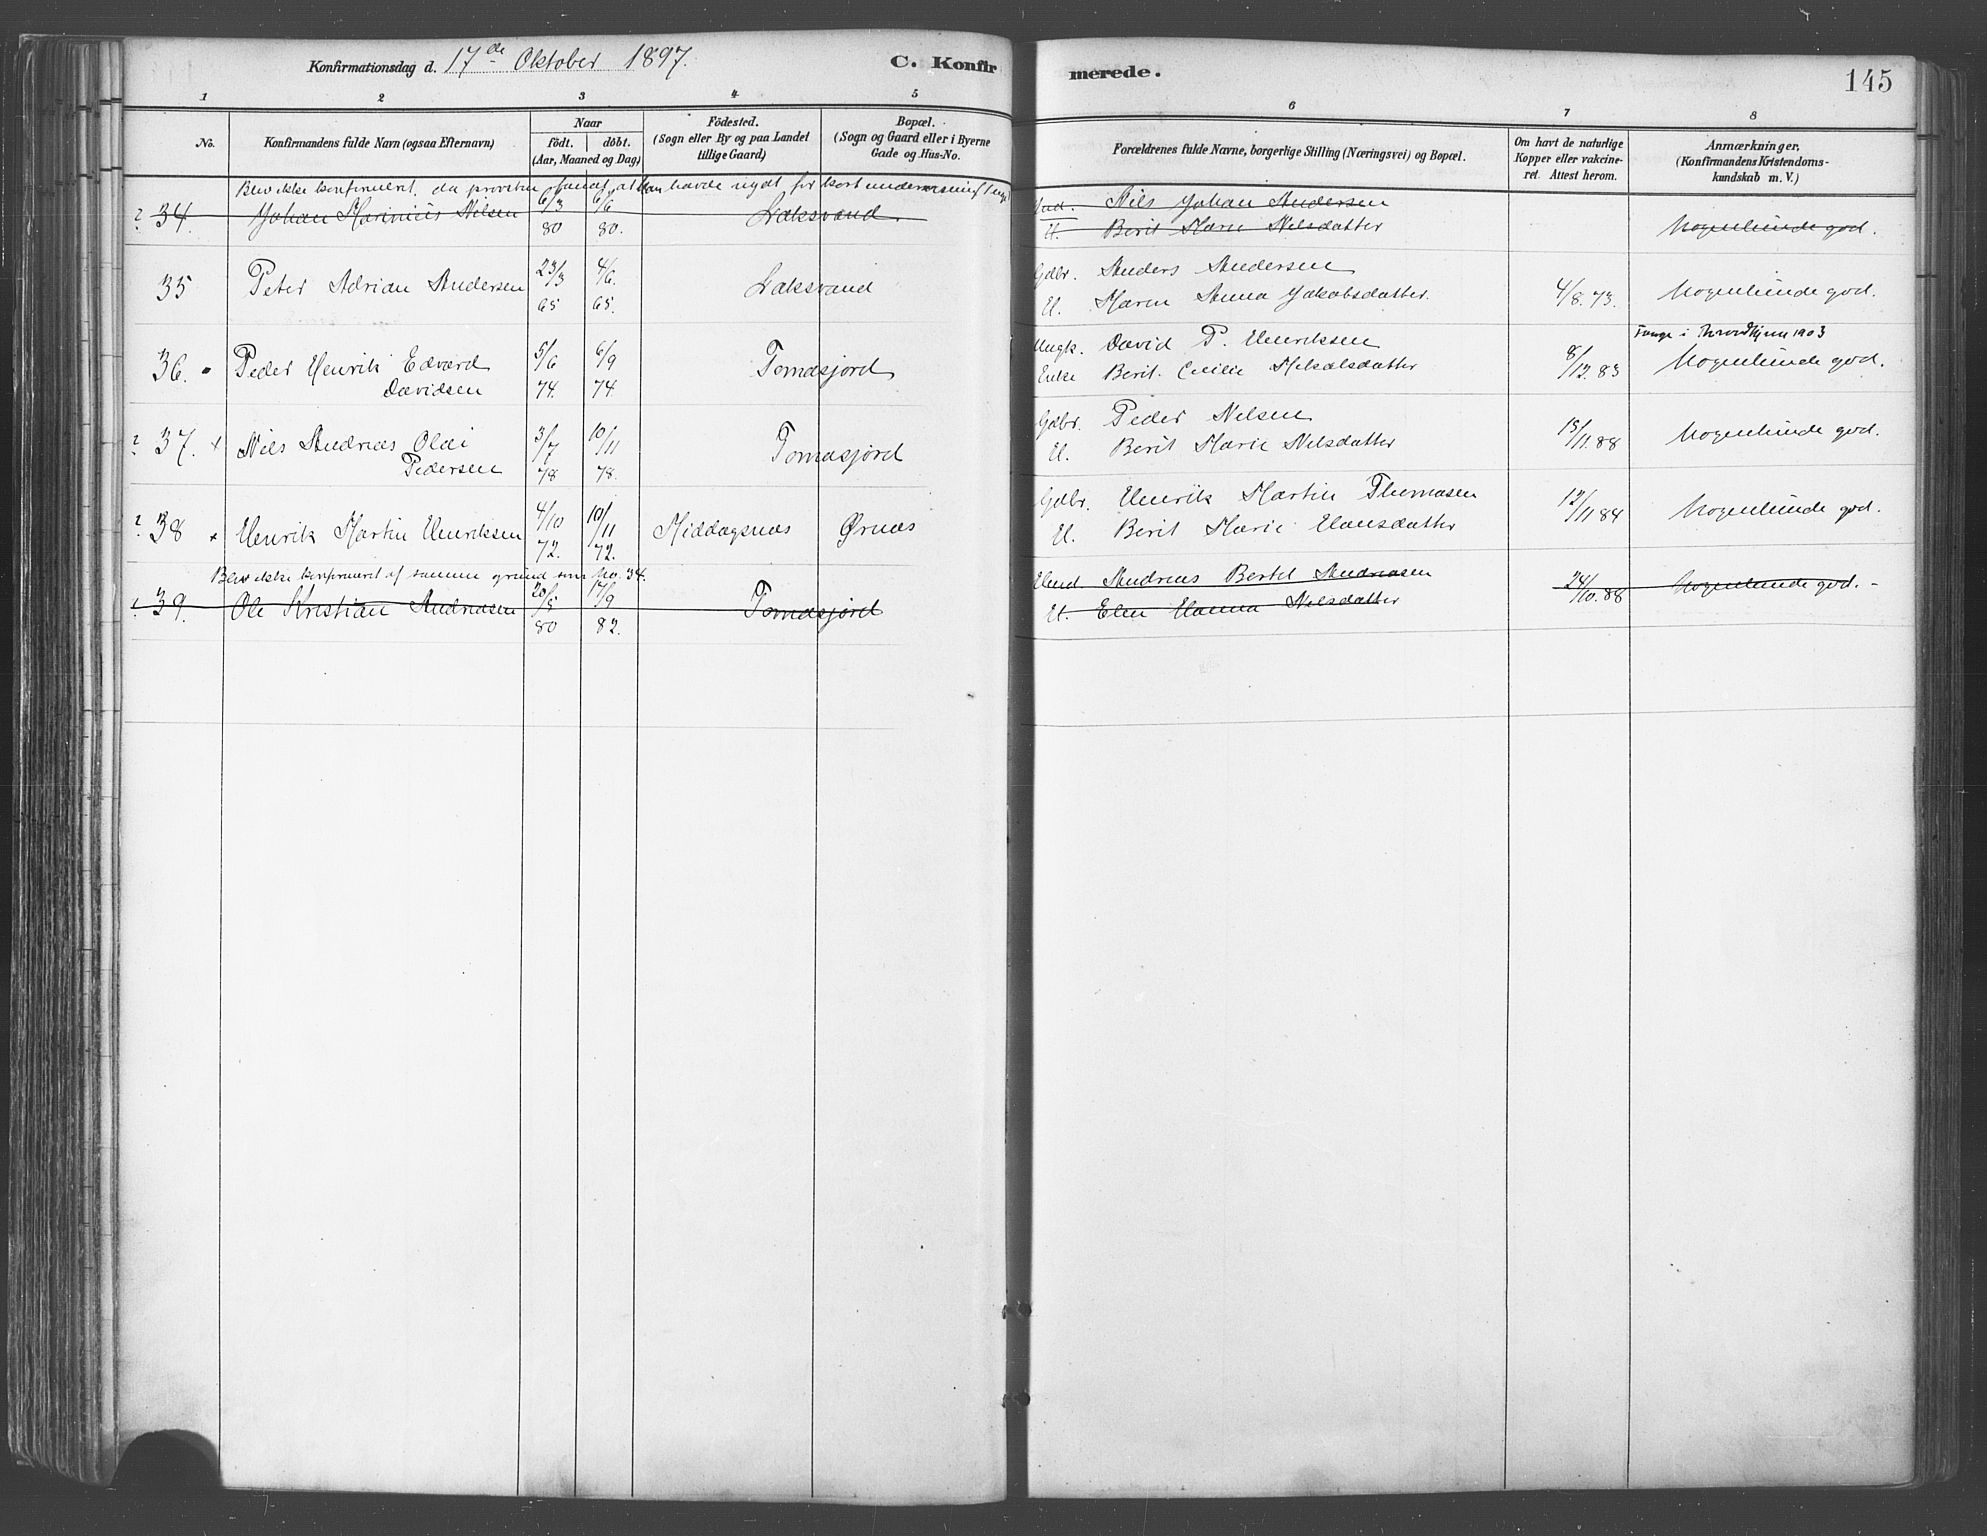 Konfirmationsdag d. 17de Oktober 1897.
C. Konfir
merede.
145
1 2 3 4 5
6 7 8
No.
Konfirmandens fulde Navn (ogsaa Efternavn)
Naar
født. døbt.
(Aar, Maaned og Dag)
Fødested.
(Sogn eller By og paa Landet
tillige Gaard)
Bopæl.
(Sogn og Gaard eller i Byerne
Gade og Hus-No.
Forældrenes fulde Navne, borgerlige Stilling (Næringsvei) og Bopæl.
Om havt de naturlige
Kopper eller vakcine-
ret. Attest herom.
Anmærkninger,
(Konfirmandens Kristendoms-
kundskab m. V.)
Blev ikke konfirmeret, da provsten fandt, at han havde nydt for kort undervisning
? 34. Johan Marinius Nilsen 6/3 80 6/6 80. Laksvand.
Ind. Nils Johan Andersen
H. Berit Marie Nilsdatter
Nogenlunde god.
35 Peter Adrian Andersen 23/3 65 4/6. 65. Laksvand
Gdbr. Anders Andersen
H. Maren Anna Jakobsdatter.
4/8.73. Nogenlunde god.
36. Peder Henrik Edvard
Davidsen
5/6 74. 6/9 74. Tomasjord
Ungk. David P. Henriksen
Enke Berit Cecilie Mikalsdatter
8/12.83
Fange i Trondhjem 1903
Nogenlunde god.
? 37. x Nils Andreas Olai
Pedersen
3/7 78 10/11 78. Tomasjord
Gdbr. Peder Nilsen
H. Berit Marie Nilsdatter
13/11.88 Nogenlunde god.
? 38 x Henrik Martin Henriksen 4/10 72. 10/11 72. Middagsnæs Ørnæs
Gdbr. Henrik Martin Thomasen
H. Berit Marie Hansdatter
12/11.84 Nogenlunde god.
Blev ikke konfirmeret af samme grund som No. 34.
? 39. Ole Kristian Andreasen 20/5 80 17/9 82. Tomasjord
Andreas Bertel Andreasen
H. Elen Hanna Nilsdatter
24/10.88 Nogenlunde god. -